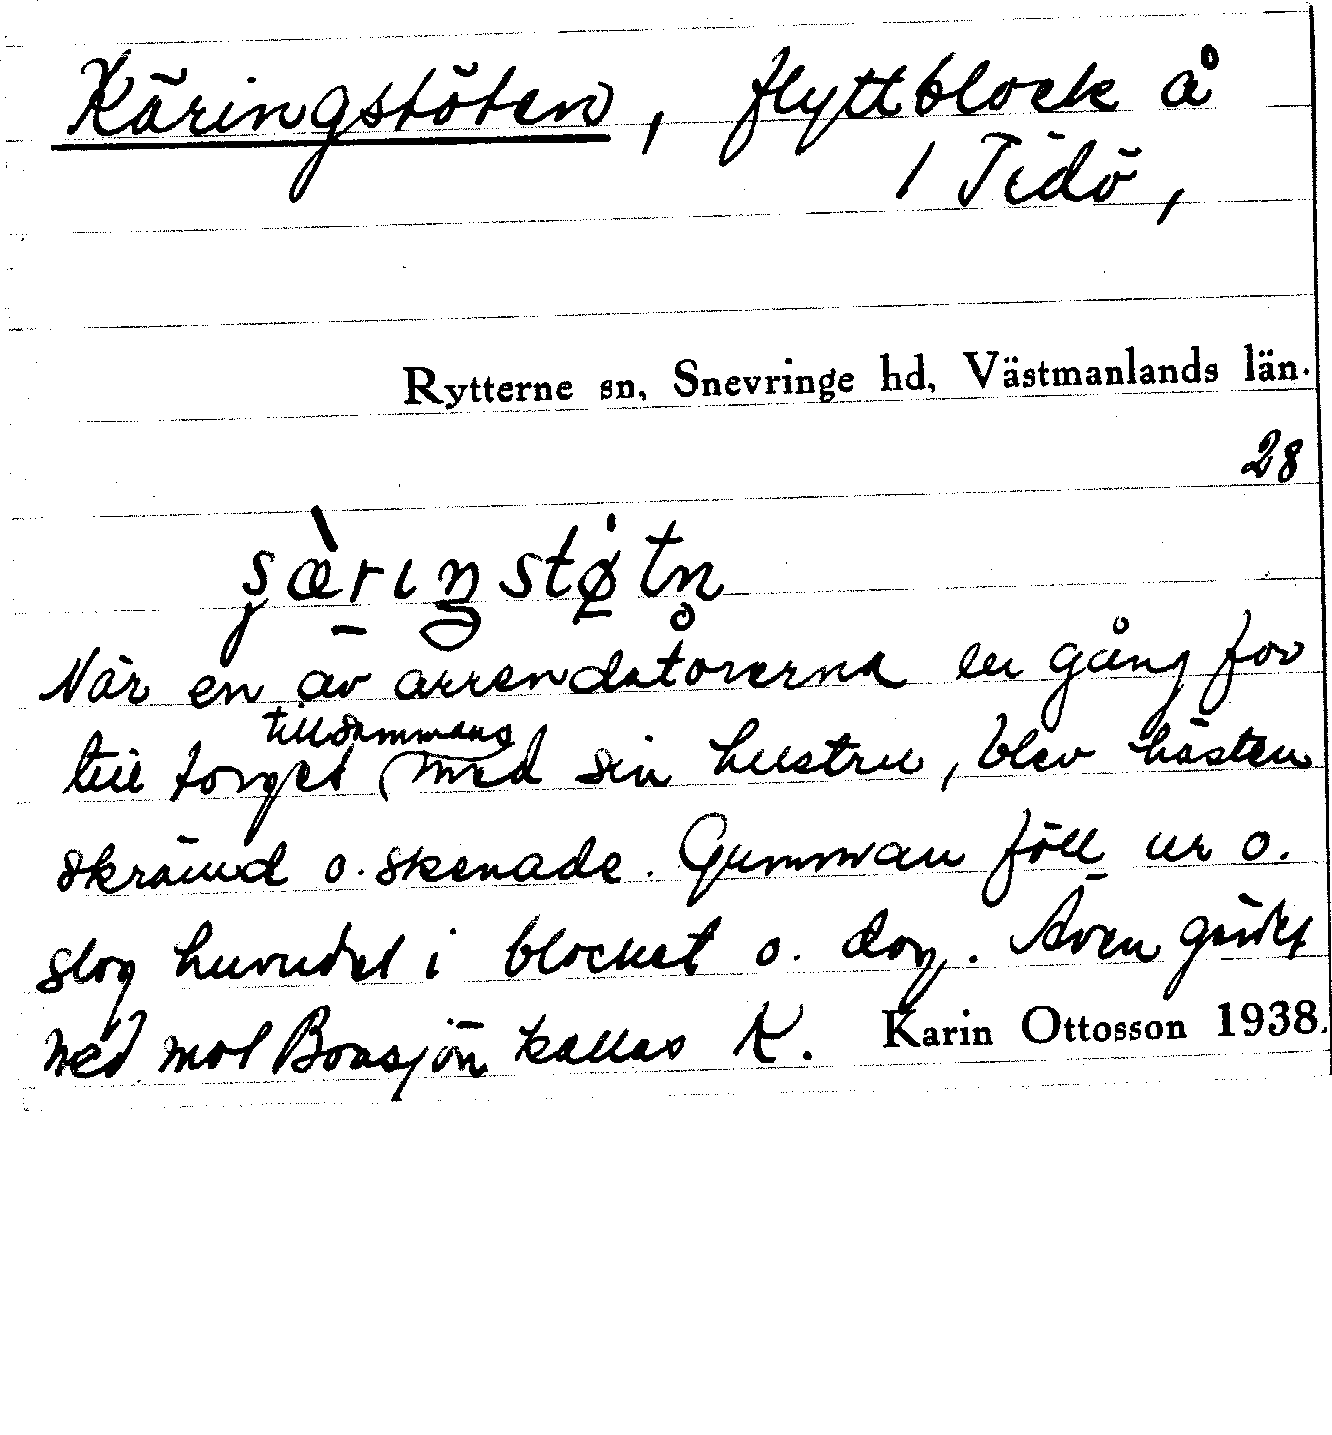 Käringstöten, flyttblock å
1 Tidö,
Rytterne sn, Snevringe hd, Västmanlands län.
28
ʂæ̀rıŋstø̇tn̥
När en av arrendatorerna en gång for
till torget tillsammans med sin hustru, blev hästen
skrämd o. skenade. Gumman föll ur o.
slog huvudet i blocket o. dog. Även gärdet
ned mot Boasjön kallas K. Karin Ottosson 1938.